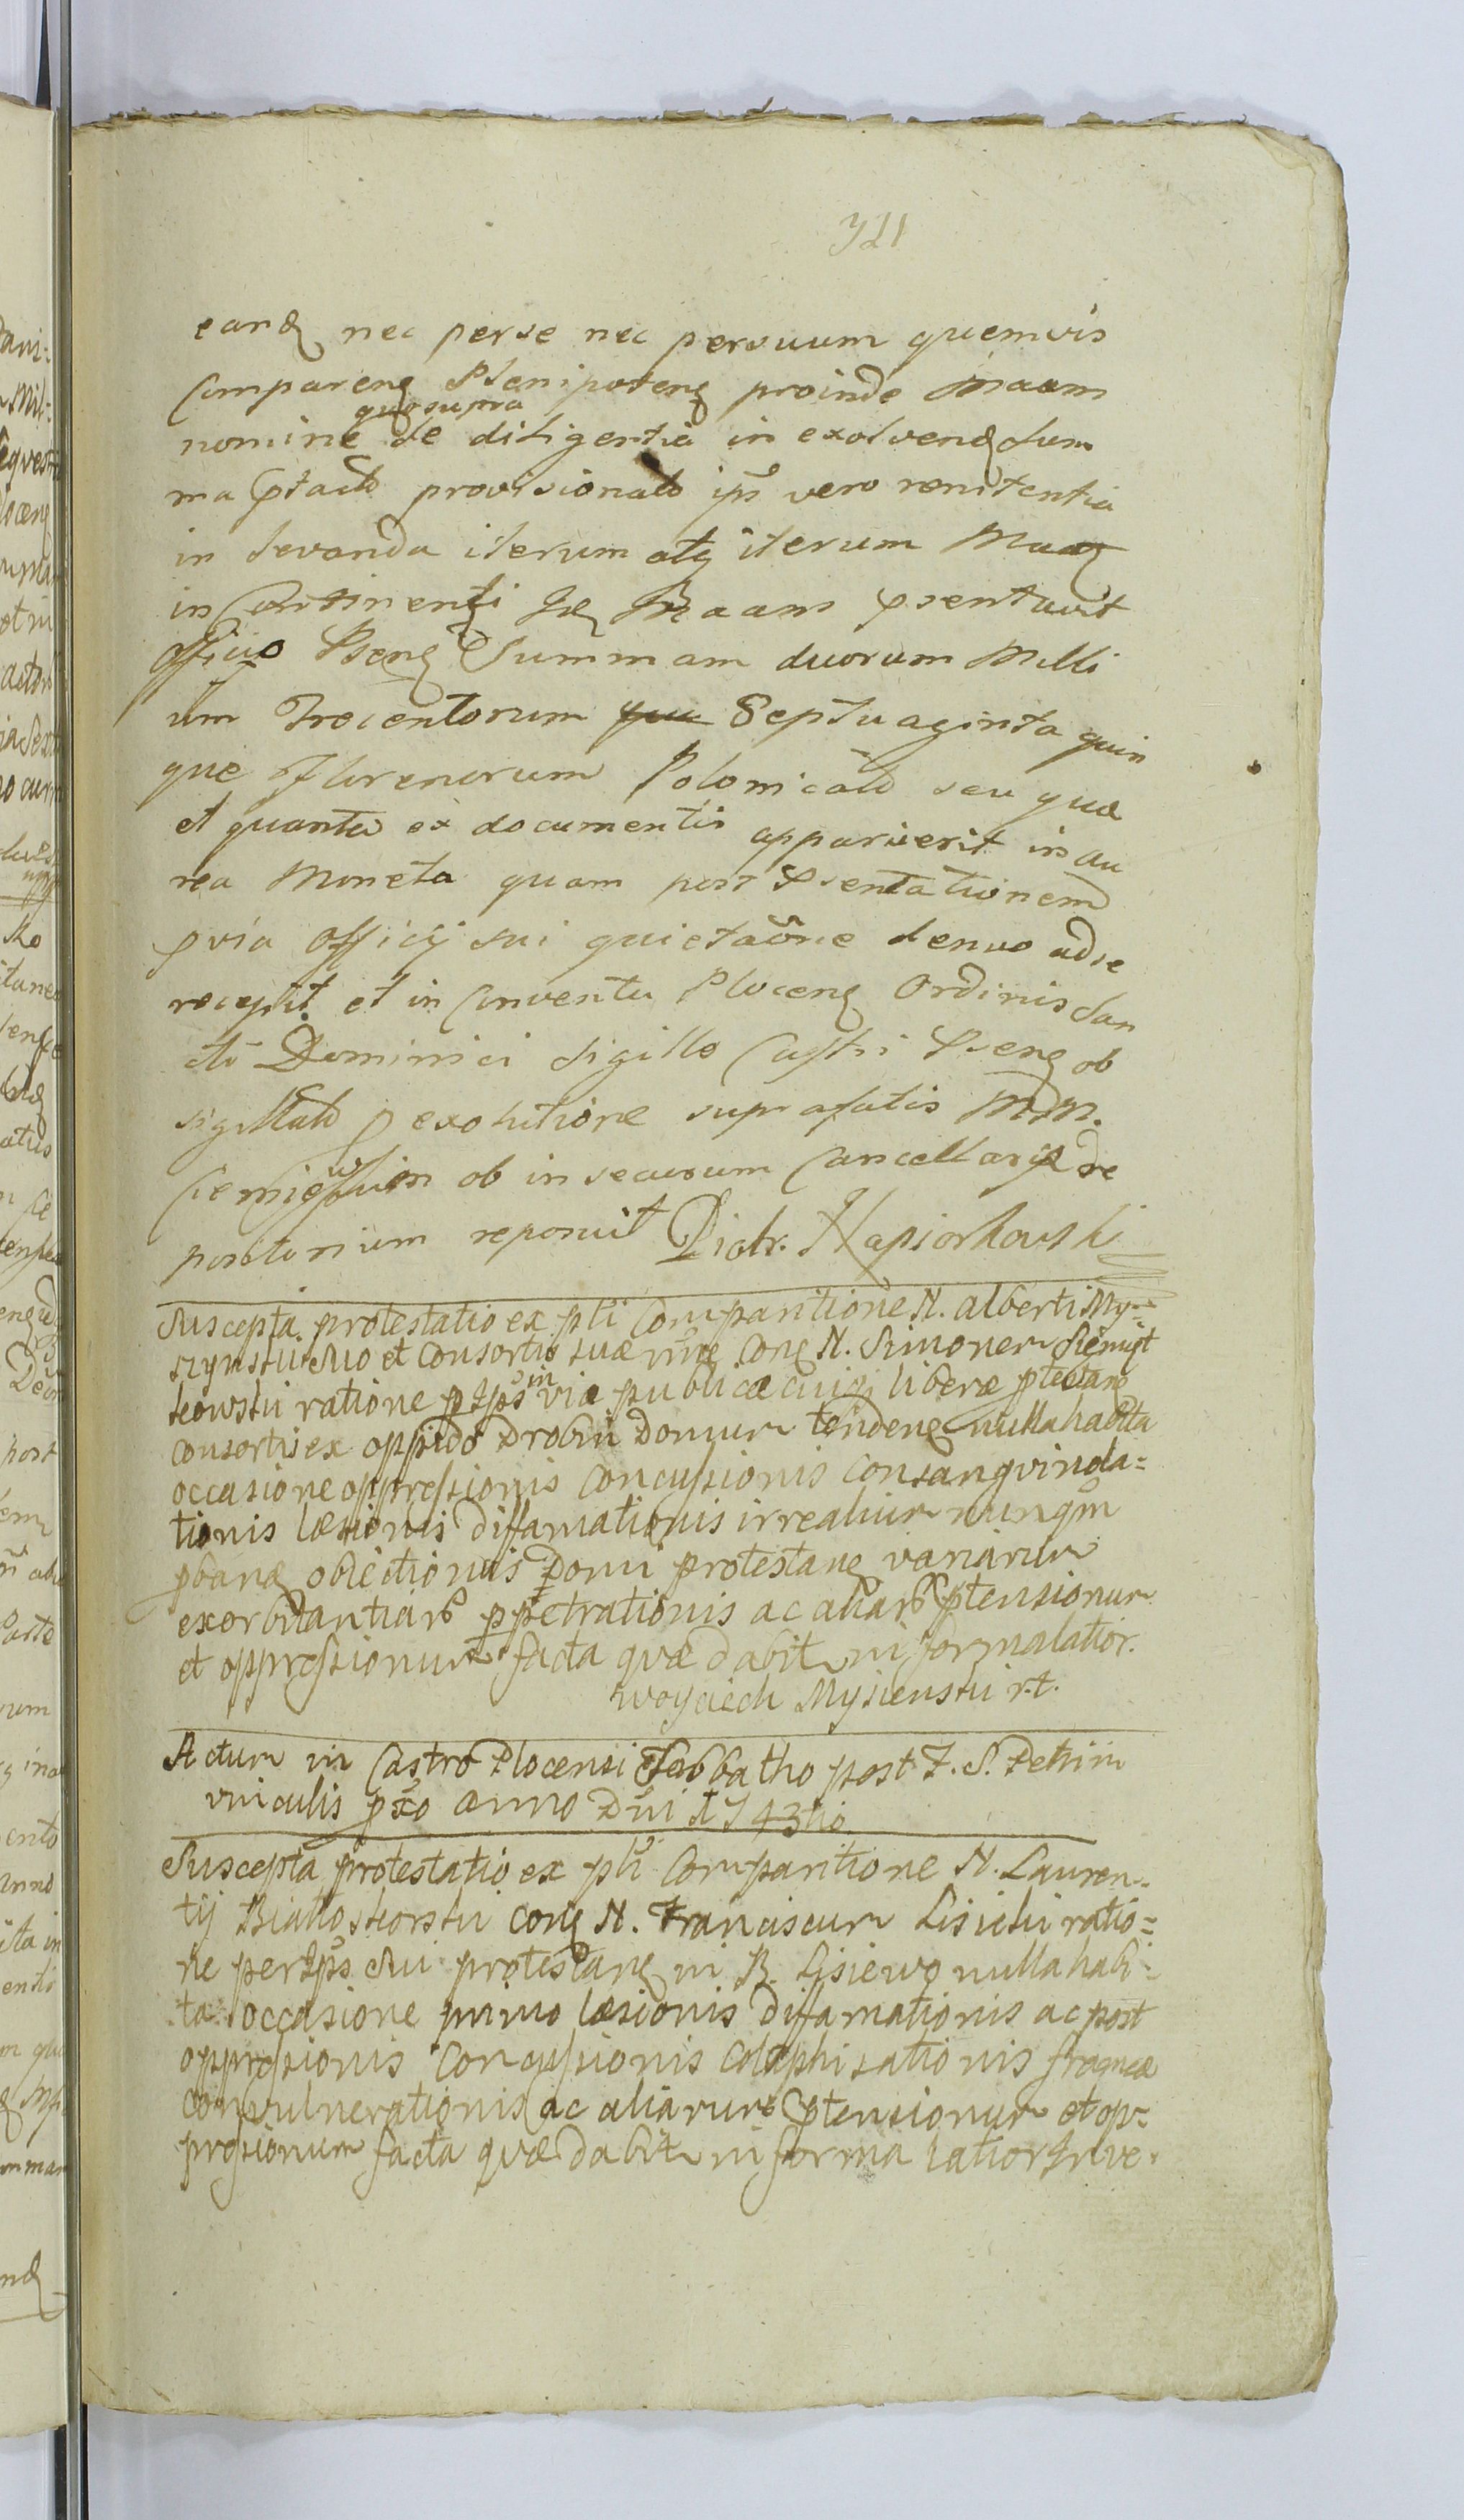 721
eand nec per se nec per suum quemvis
Compareng Plenipoteng proinde Maam
quo supra
nomine de diligentia in exolvend sum
ma ptacto provisionali ips vero renitentia
in levanda iterum atq iterum
in Continenti Maam psentavit
Officio Pseng Summam duorum Milli
um Trecentorum Septuaginta quin
que Florenorum Polonicali seu qua
et quanta ex documentis apparuerit in au
rea Moneta quam post Psentationem
pvia Officij sui quietaōne denuo ad se
recepit et in Conventu Ploceng Ordinis San
cti Dominici sigillo Castri Pseng ob
sigillato p exolutione suprafatis MM.
ob in securum Cancellariæ re
positorium reposuit Piotr. Kapiorkowski
Suscepta protestatio ex pti Comparitione N. Alberti My-
szynski suo et consortis suæ nne Cong N. Simonem
kowski ratione p Ips in viæ publicæ cuiq liberæ ptestang
consortis ex oppido Drobin Domum tendeng nulla habita
occasione oppressionis Concussionis Consangvinola=
tionis læsionis diffamationis irrealium nunqm
pband obiectionis Domi protestang variarum
exorbitantiarū ppetrationis ac aliarū ptensionum
et oppressionum facta quæ dabitur in forma latior.
Woyciech Mysienski r.t.
Actum in Castro Plocensi Sabbatho post F. S. Petri in
vinculis pxo Anno Dni 1743tio
Suscepta protestatio ex pti Comparitione N. Lauren-
tij Białoskorski cong N. Franciscum Lisicki ratio=
ne per Ips sui protestang in B. Lisiewo nulla habi-
ta occasione primo læsionis diffamationis ac post
oppressionis Concussionis Colaphisationis
convulnerationis ac aliarum ptensionum et op-
pressionum facta quæ dabitur in forma latior